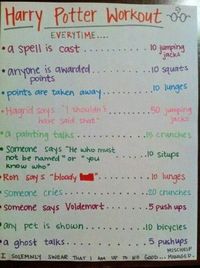 Harry Potter Workout
EVERYTIME....
• a spell is cast........10 jumping jacks
• anyone is awarded.......10 squats
points
• points are taken away......10 lunges
• Hagrid says "I shouldn't.....50 jumping
have said that" jacks
• a painting talks........15 crunches
• Someone says "He who must
not be named" or "you.....10 situps
know who"
• Ron says "bloody.....10 lunges
• Someone cries........20 crunches
• someone says Voldemort....5 push ups
• any pet is shown......10 bicycles
• a ghost talks........5 pushups
I SOLEMNLY SWEAR THAT I AM UP TO NO GOOD... MISCHIEF MANAGED.